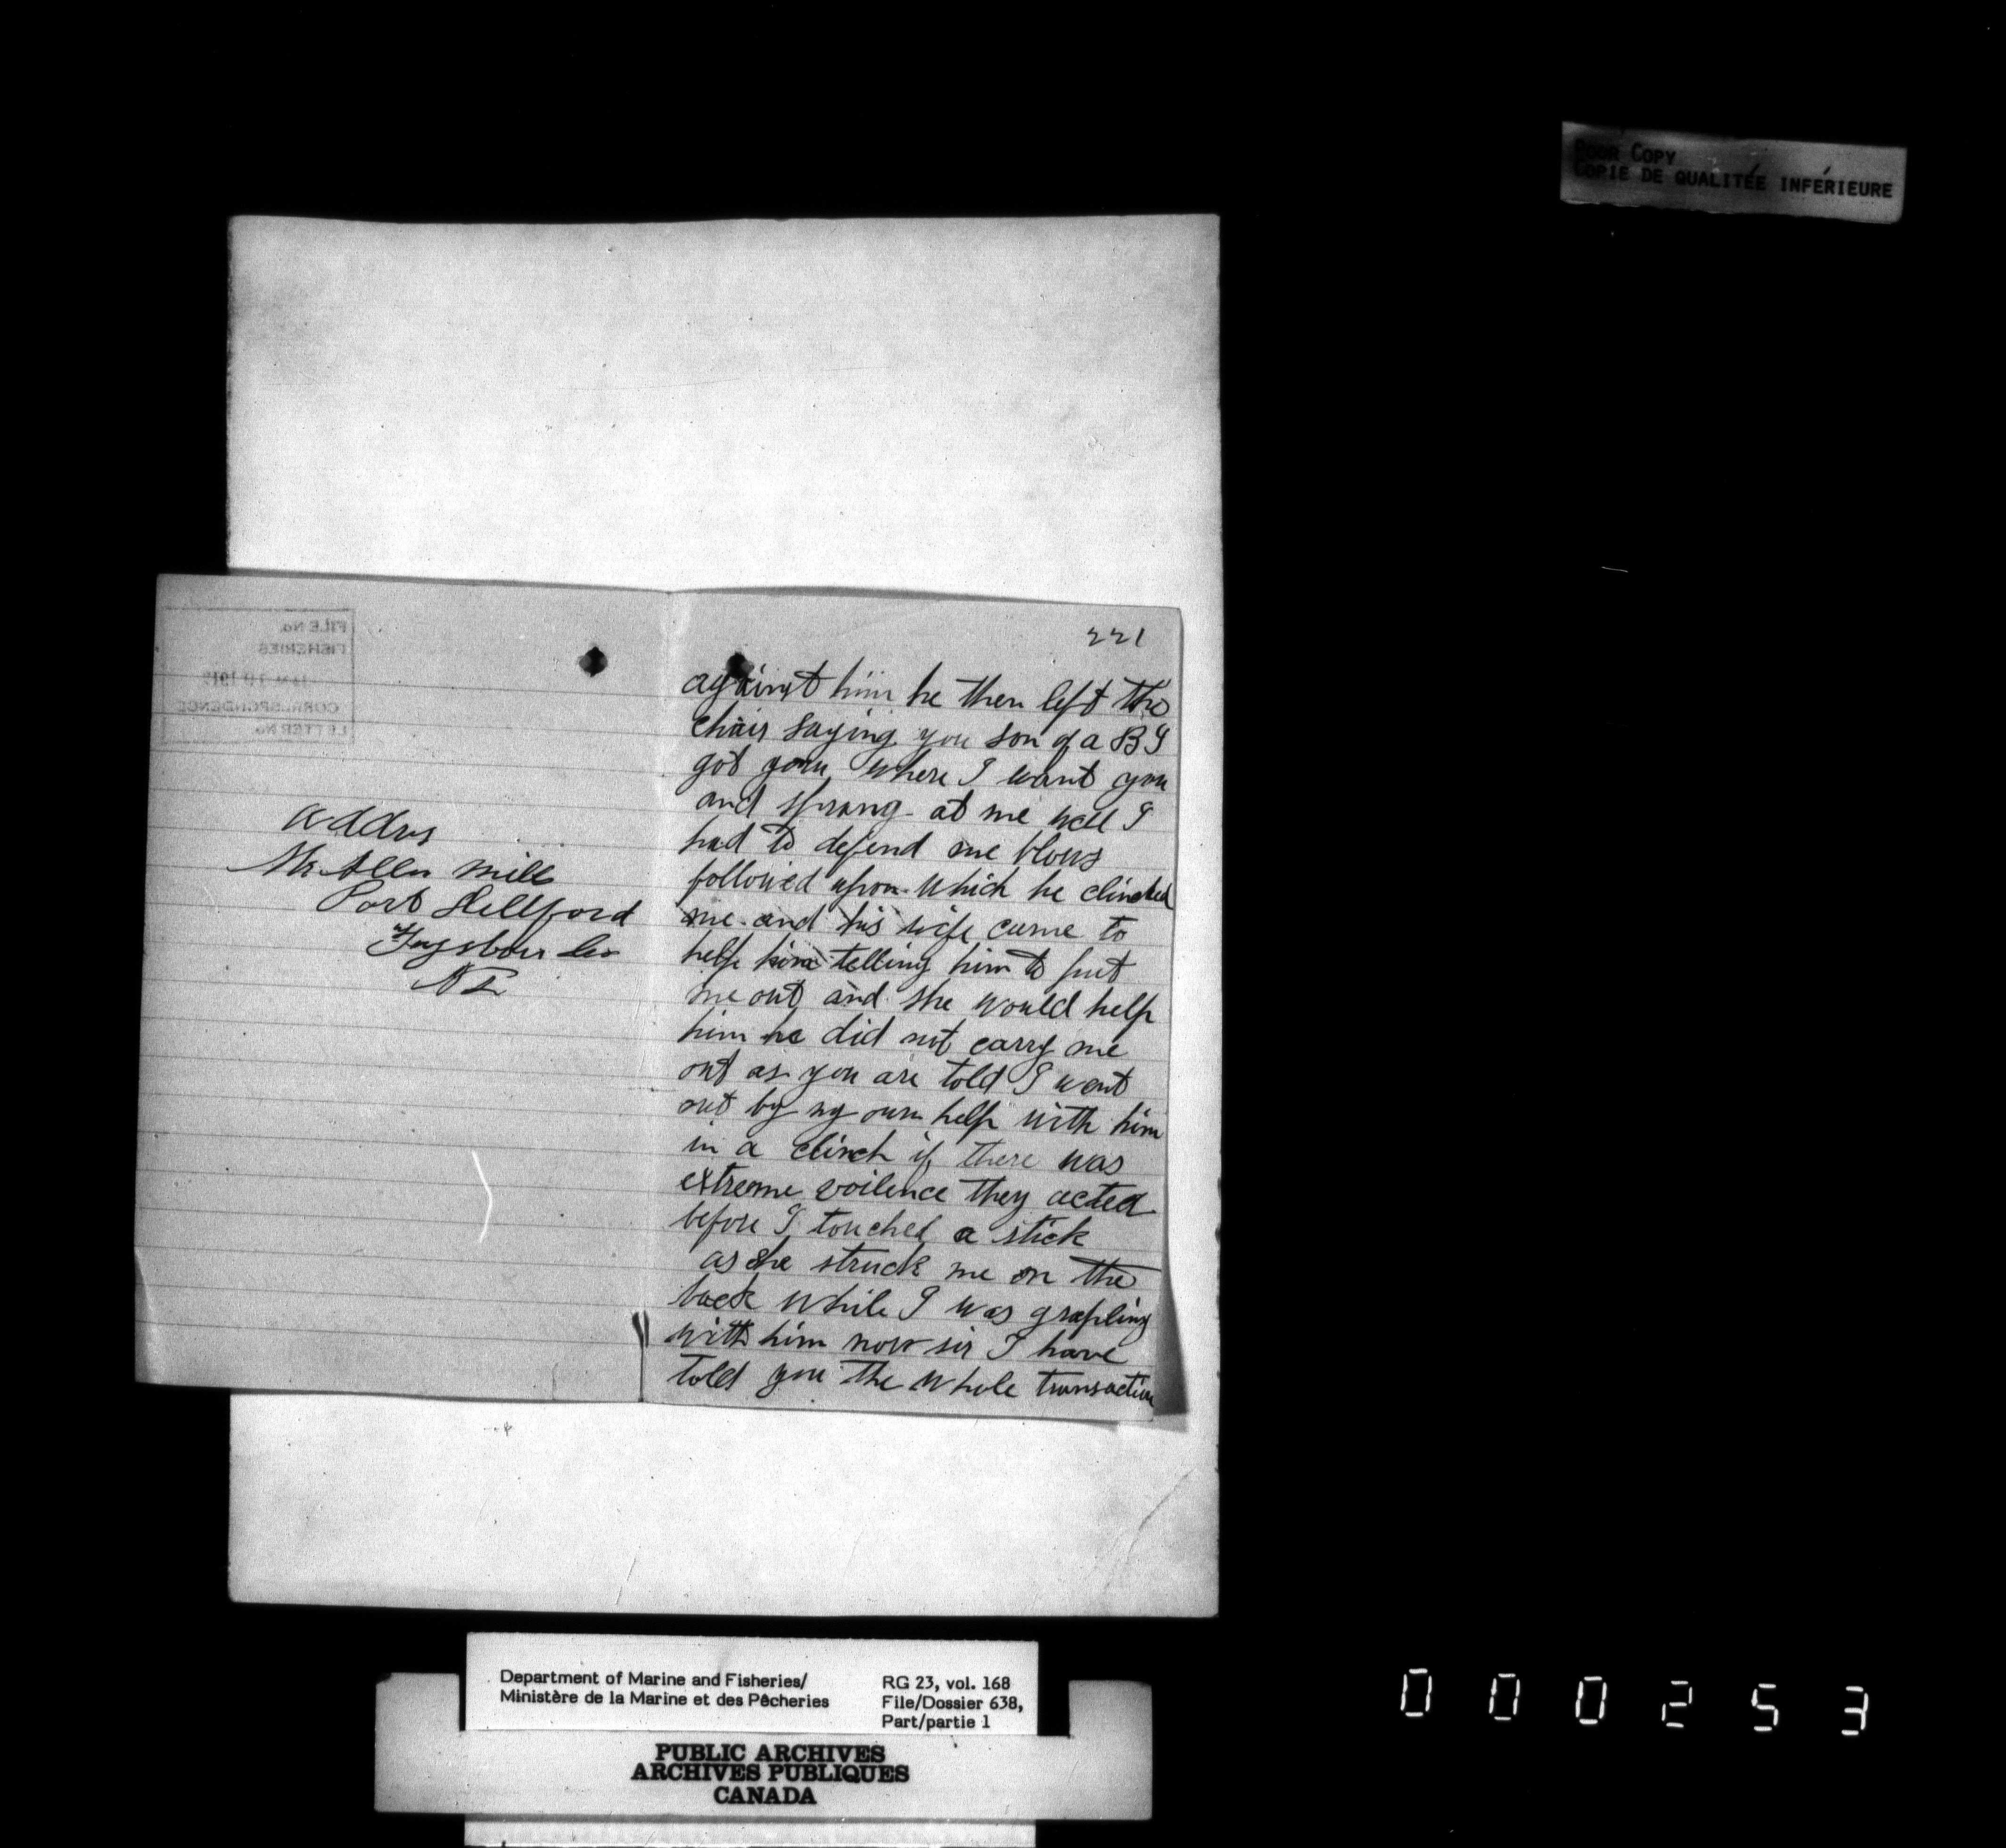 POOR COPY
COPIE DE QUALITÉE INFÉRIEURE
FILE No.
FISHERIES
JAN 10 1912
CORRESPONDENCE
LETTER No.
addrs
Mr Allen Mill
Port Hillford
Guysbour Co
N S
221
against him he then left the
chair saying you son of a B I
got you where I want you
and sprang at me well I
had to defend me blows
followed upon which he clinched
me and his wife came to
help him telling him to put
me out and she would help
him he did not carry me
out as you are told I went
out by my own help with him
in a clinch if there was
extreme voilence they acted
before I touched a stick
as she struck me on the
back while I was grapling
with him now sir I have
told you the whole transaction
Department of Marine and Fisheries/
Ministère de la Marine et des Pêcheries
RG 23, vol. 168
File/Dossier 638,
Part/partie 1
PUBLIC ARCHIVES
ARCHIVES PUBLIQUES
CANADA
000253